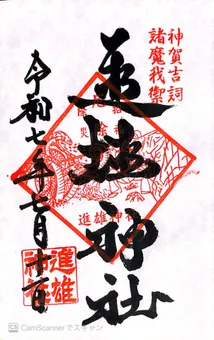 神賀吉詞
諸魔我禦
進雄神社
令和七年七月
進雄神社
進雄
神社
CamScannerでスキャン